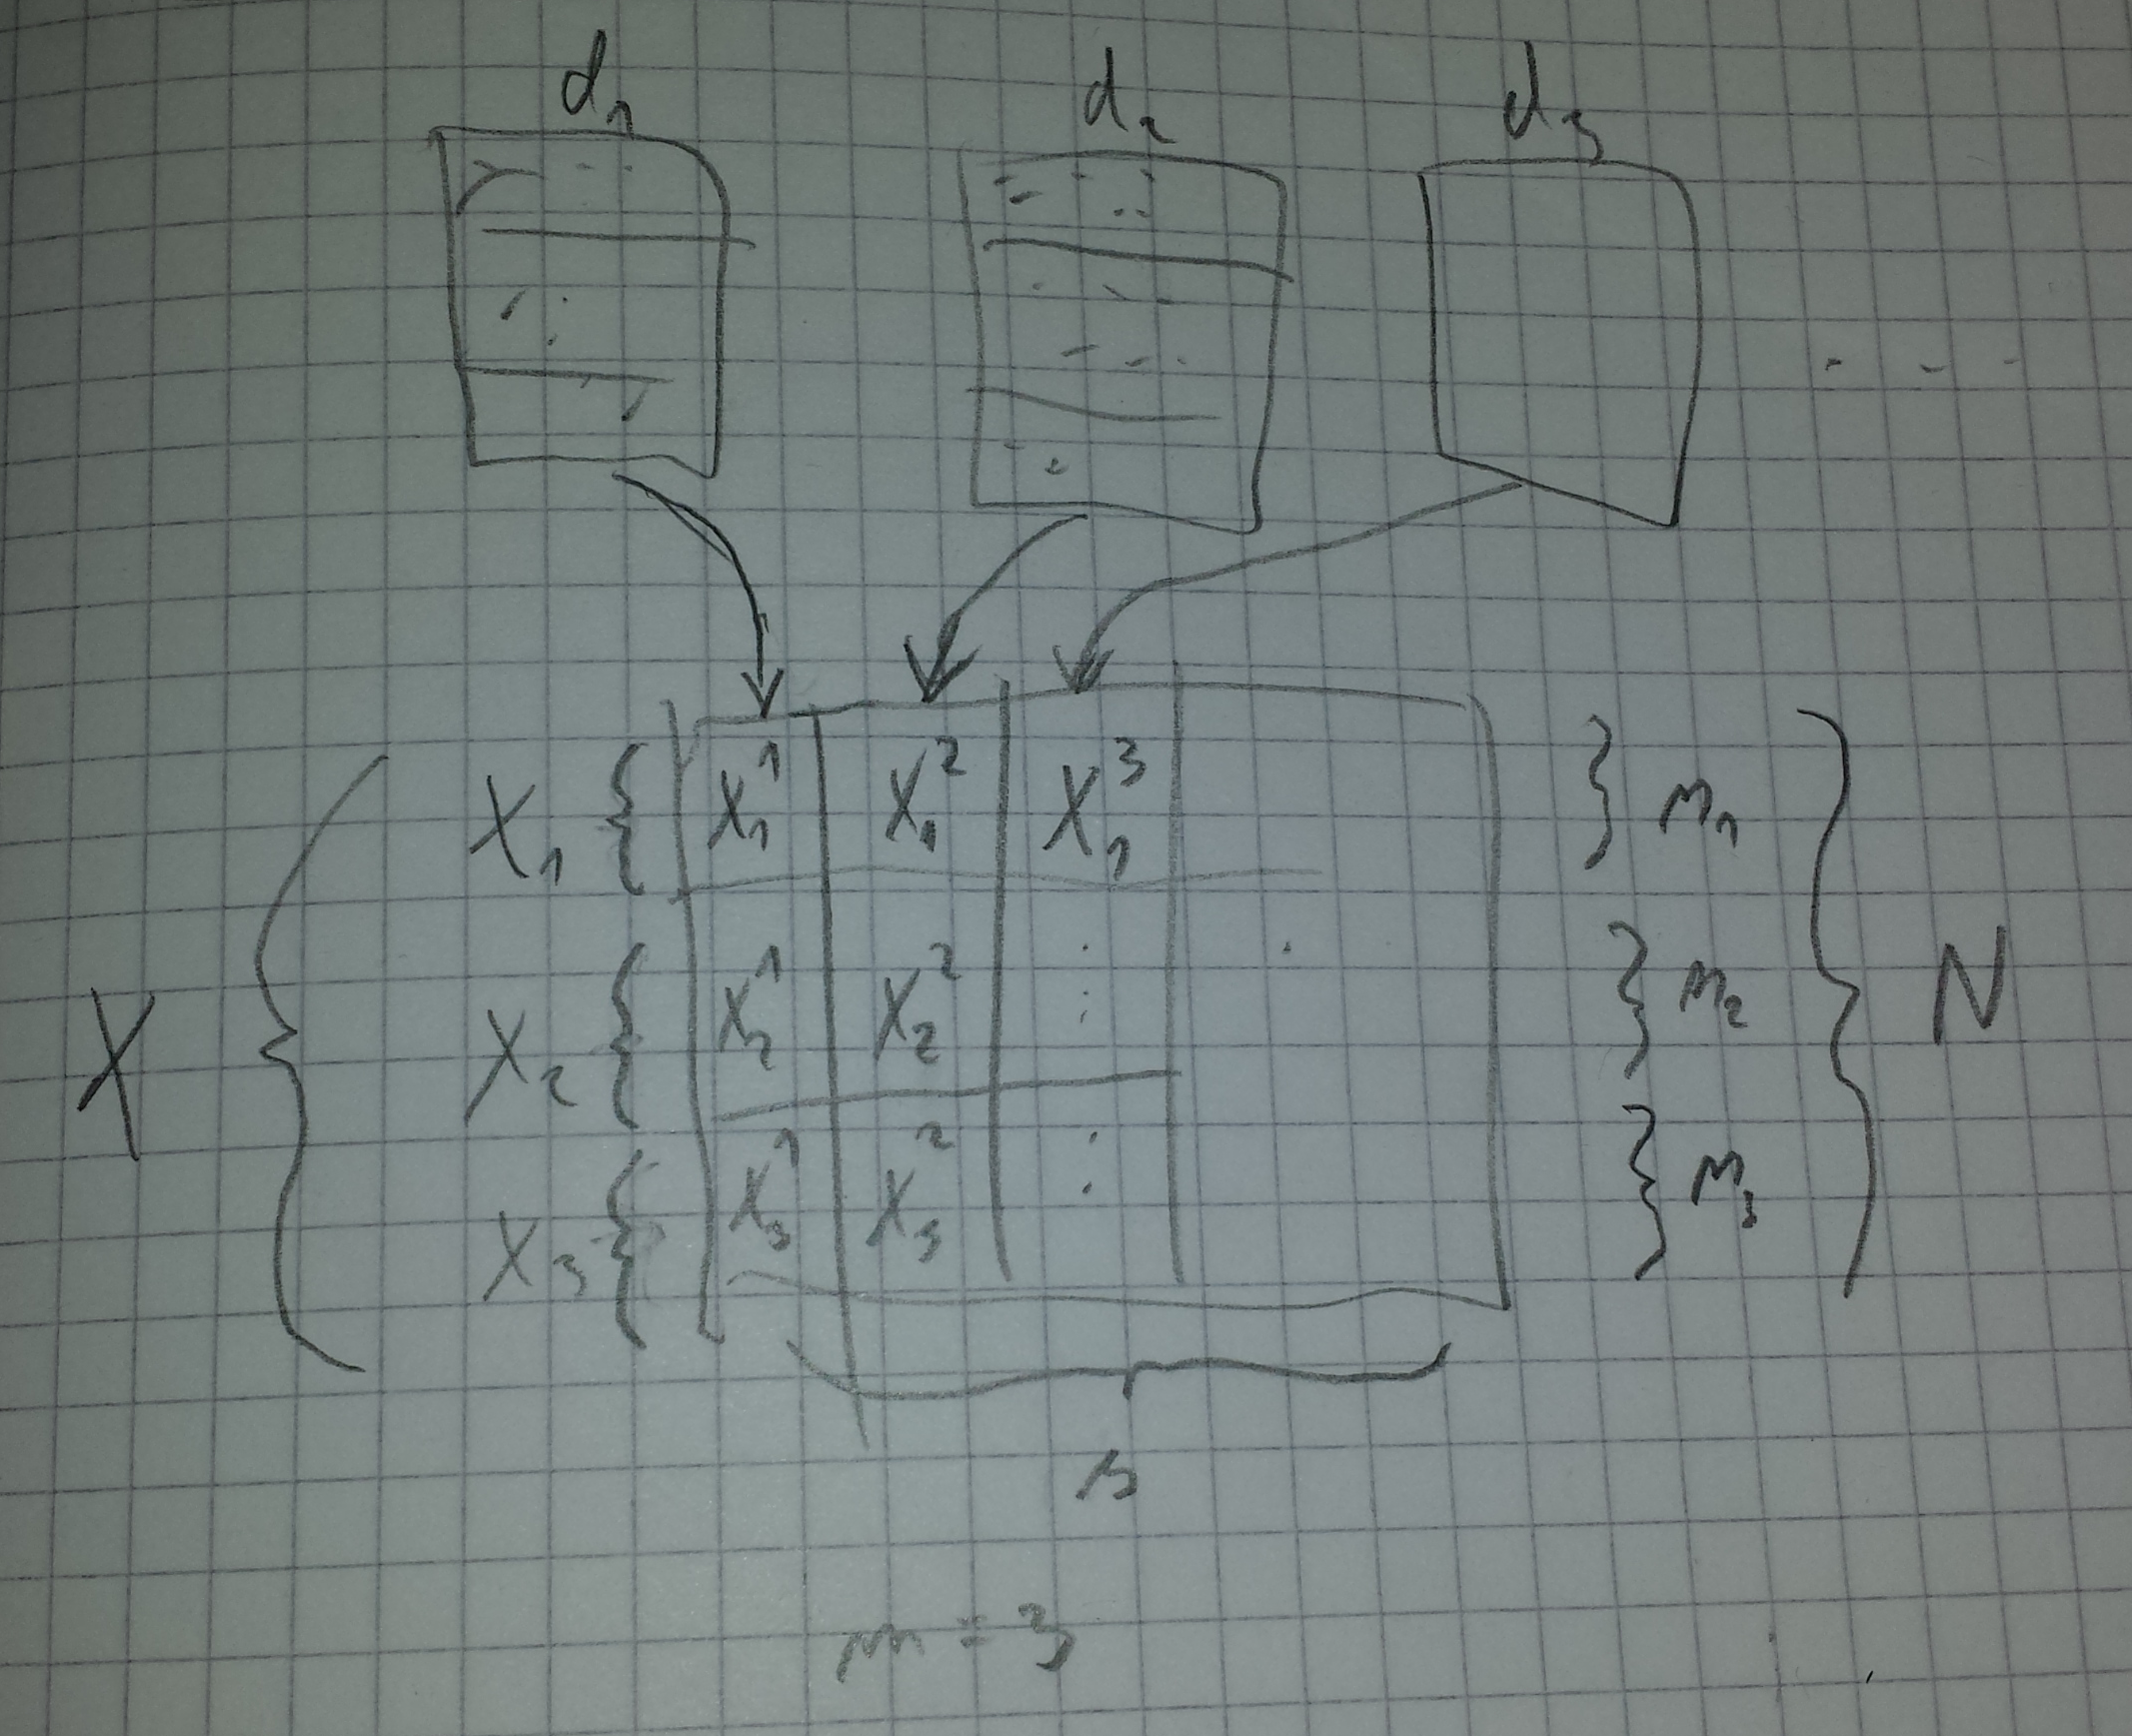 d₁ d₂ d₃
. . .
X₁ { X₁¹ X₁² X₁³ } n₁
X { X₂ { X₂¹ X₂² : . } n₂ } N
X₃ { X₃¹ X₃² : } n₃
s
m = 3